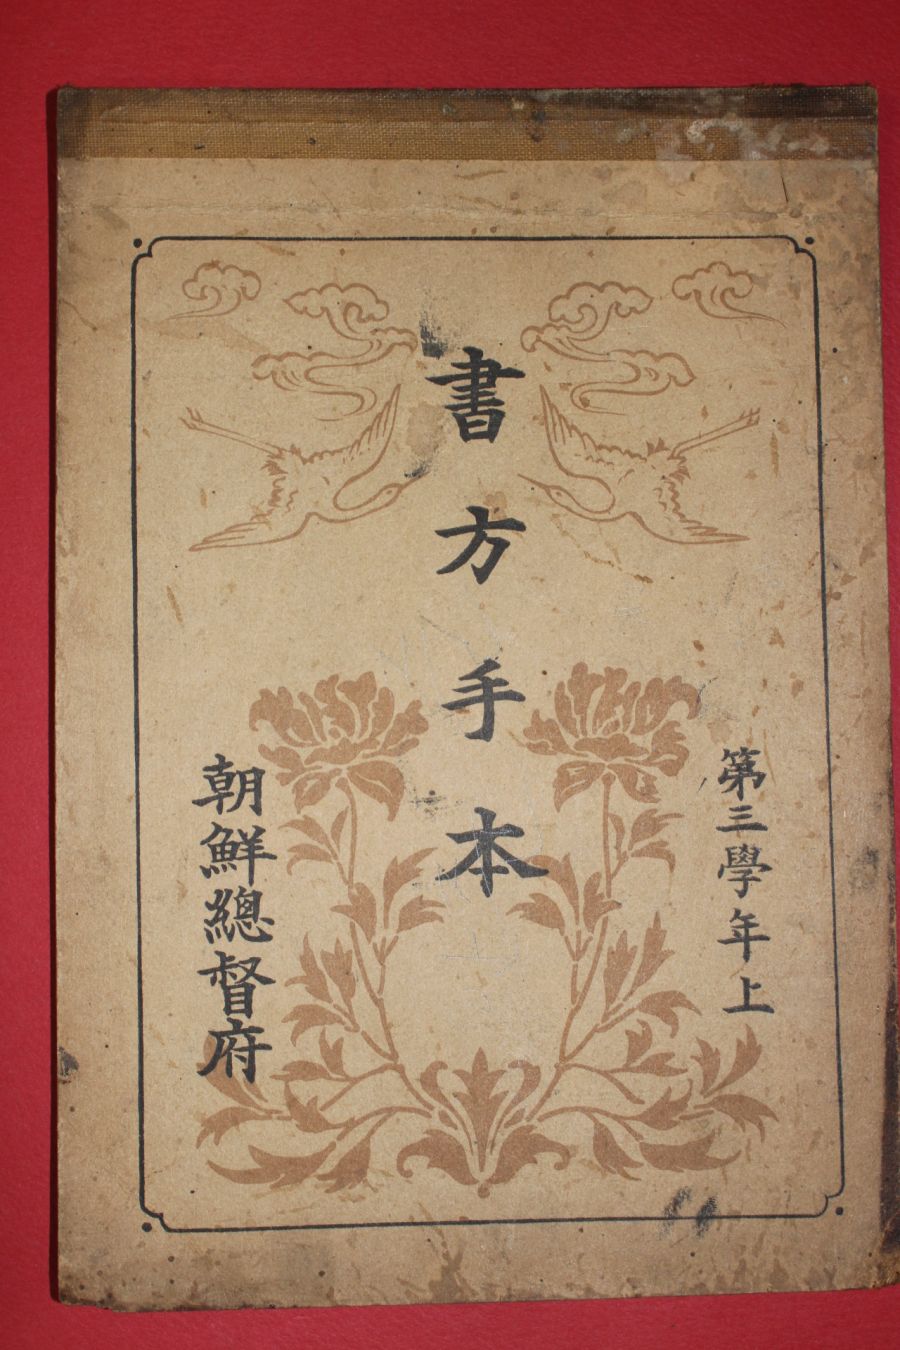 第三學年上
書方手本
朝鮮總督府